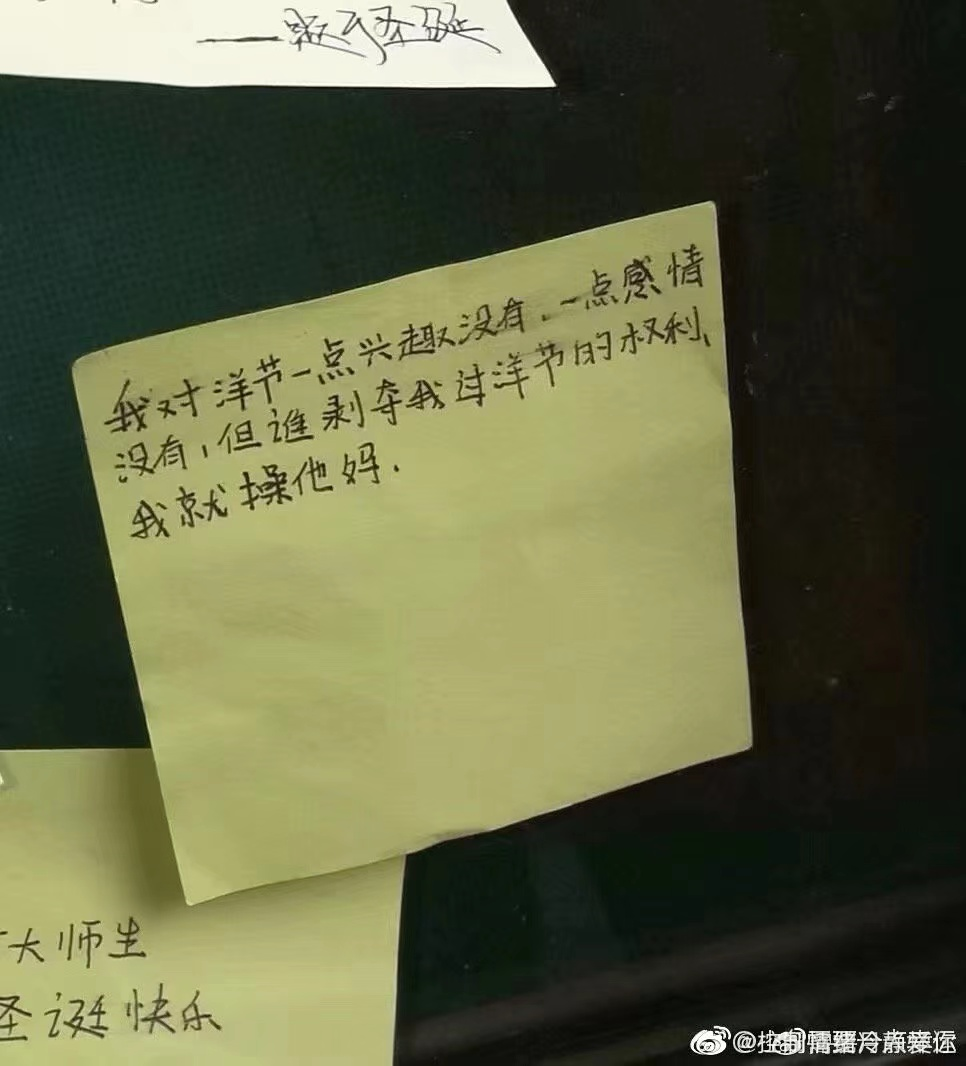 圣诞
我对洋节一点兴趣没有.一点感情
没有,但谁剥夺我过洋节的权利、
我就操他妈.
大师生
圣诞快乐